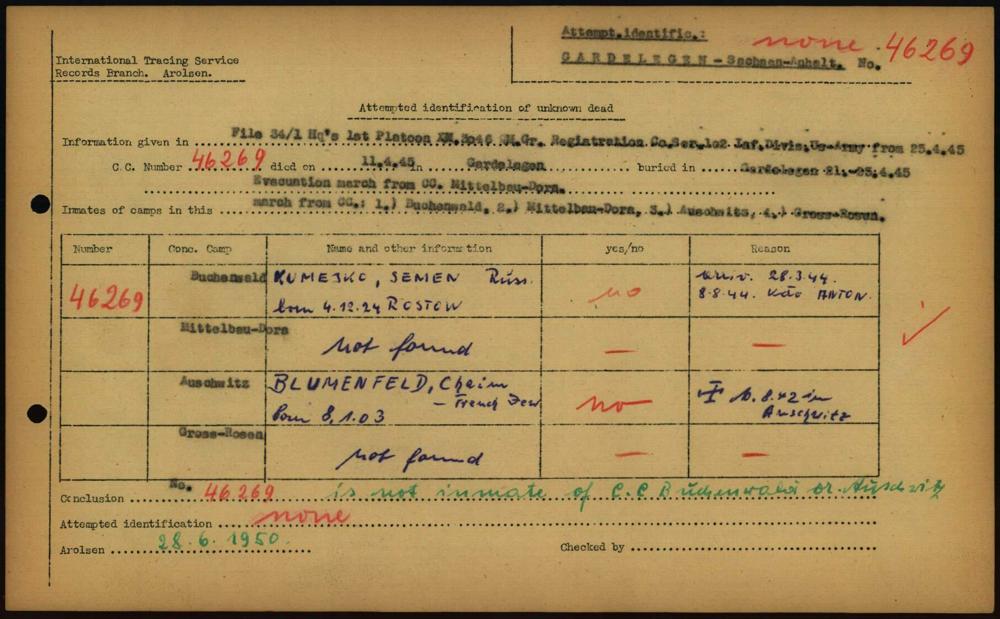 International Tracing Service
Records Branch. Arolsen.
Attempt.identific.: none
GARDELEGEN - Sachsen-Anhalt. No. 46269
Attempted identification of unknown dead
Information given in File 34/1 Hq's 1st Platoon XM.3046 Gr. Registration Co.Ser.102 Inf.Divis.Us-Army from 25.4.45
C.C. Number 46269 died on 11.4.45 in Gardelegen buried in Gardelegen 21.-25.4.45
Evacuation march from CC. Mittelbau-Dora.
Inmates of camps in this march from CC.: 1.) Buchenwald, 2.) Mittelbau-Dora, 3.) Auschwitz, 4.) Gross-Rosen.
Number Conc. Camp Name and other information yes/no Reason
46269 Buchenwald KUMEJKO, SEMEN Russ. no arriv. 28.3.44.
born 4.12.24 ROSTOW 8-8-44. Kdo ANTON.
Mittelbau-Dora not found — —
Auschwitz BLUMENFELD, Chaim no
– French Jew
born 8.1.03 8.42 in Auschwitz
Gross-Rosen not found — —
Conclusion No. 46269 is not inmate of C.C Buchenwald or Auschwitz
Attempted identification none
Arolsen 28.6.1950. Checked by